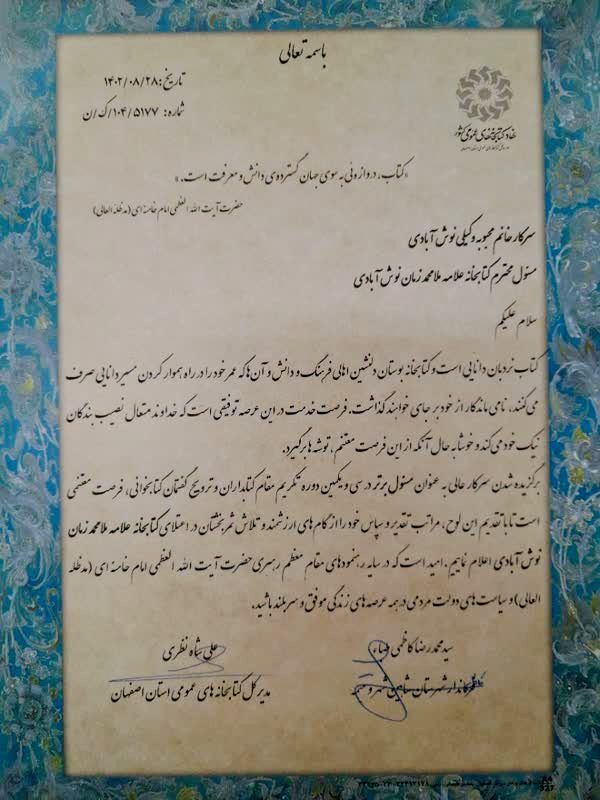 باسمه تعالی
تاریخ: ۱۴۰۲/۰۸/۲۸
شماره: ۱۰۴/۵۱۷۷/ک/ن
نهاد کتابخانه‌های عمومی کشور
«کتاب، دروازه‌ئی به سوی جهان گسترده‌ی دانش و معرفت است.»
حضرت آیت الله العظمی امام خامنه ای (مدظله العالی)
سرکار خانم محبوبه وکیلی نوش آبادی
مسئول محترم کتابخانه علامه ملامحمد زمان نوش آبادی
سلام علیکم
کتاب نردبان دانایی است و کتابخانه بوستان دلنشین اهالی فرهنگ و دانش و آن‌ها که عمر خود را در راه هموار کردن مسیر دانایی صرف
می‌کنند، نامی ماندگار از خود بر جای خواهند گذاشت. فرصت خدمت در این عرصه توفیقی است که خداوند متعال نصیب بندگان
نیک خود می‌کند و خوشا به حال آنکه از این فرصت مغتنم، توشه‌ها برگیرد.
برگزیده شدن سرکار عالی به عنوان مسئول برتر در سی و یکمین دوره تکریم مقام کتابداران و ترویج گفتمان کتابخوانی، فرصت مغتنمی
است تا با تقدیم این لوح، مراتب تقدیر و سپاس خود را از گام های ارزشمند و تلاش ثمربخشتان در اعتلای کتابخانه علامه ملامحمد زمان
نوش آبادی اعلام نماییم. امید است که در سایه رهنمودهای مقام معظم رهبری حضرت آیت الله العظمی امام خامنه ای (مدظله
العالی) و سیاست های دولت مردمی در همه عرصه های زندگی موفق و سربلند باشید.
سید محمدرضا کاظمی طباء
فرماندار شهرستان شاهین شهر و
علی شاه نظری
مدیر کل کتابخانه های عمومی استان اصفهان